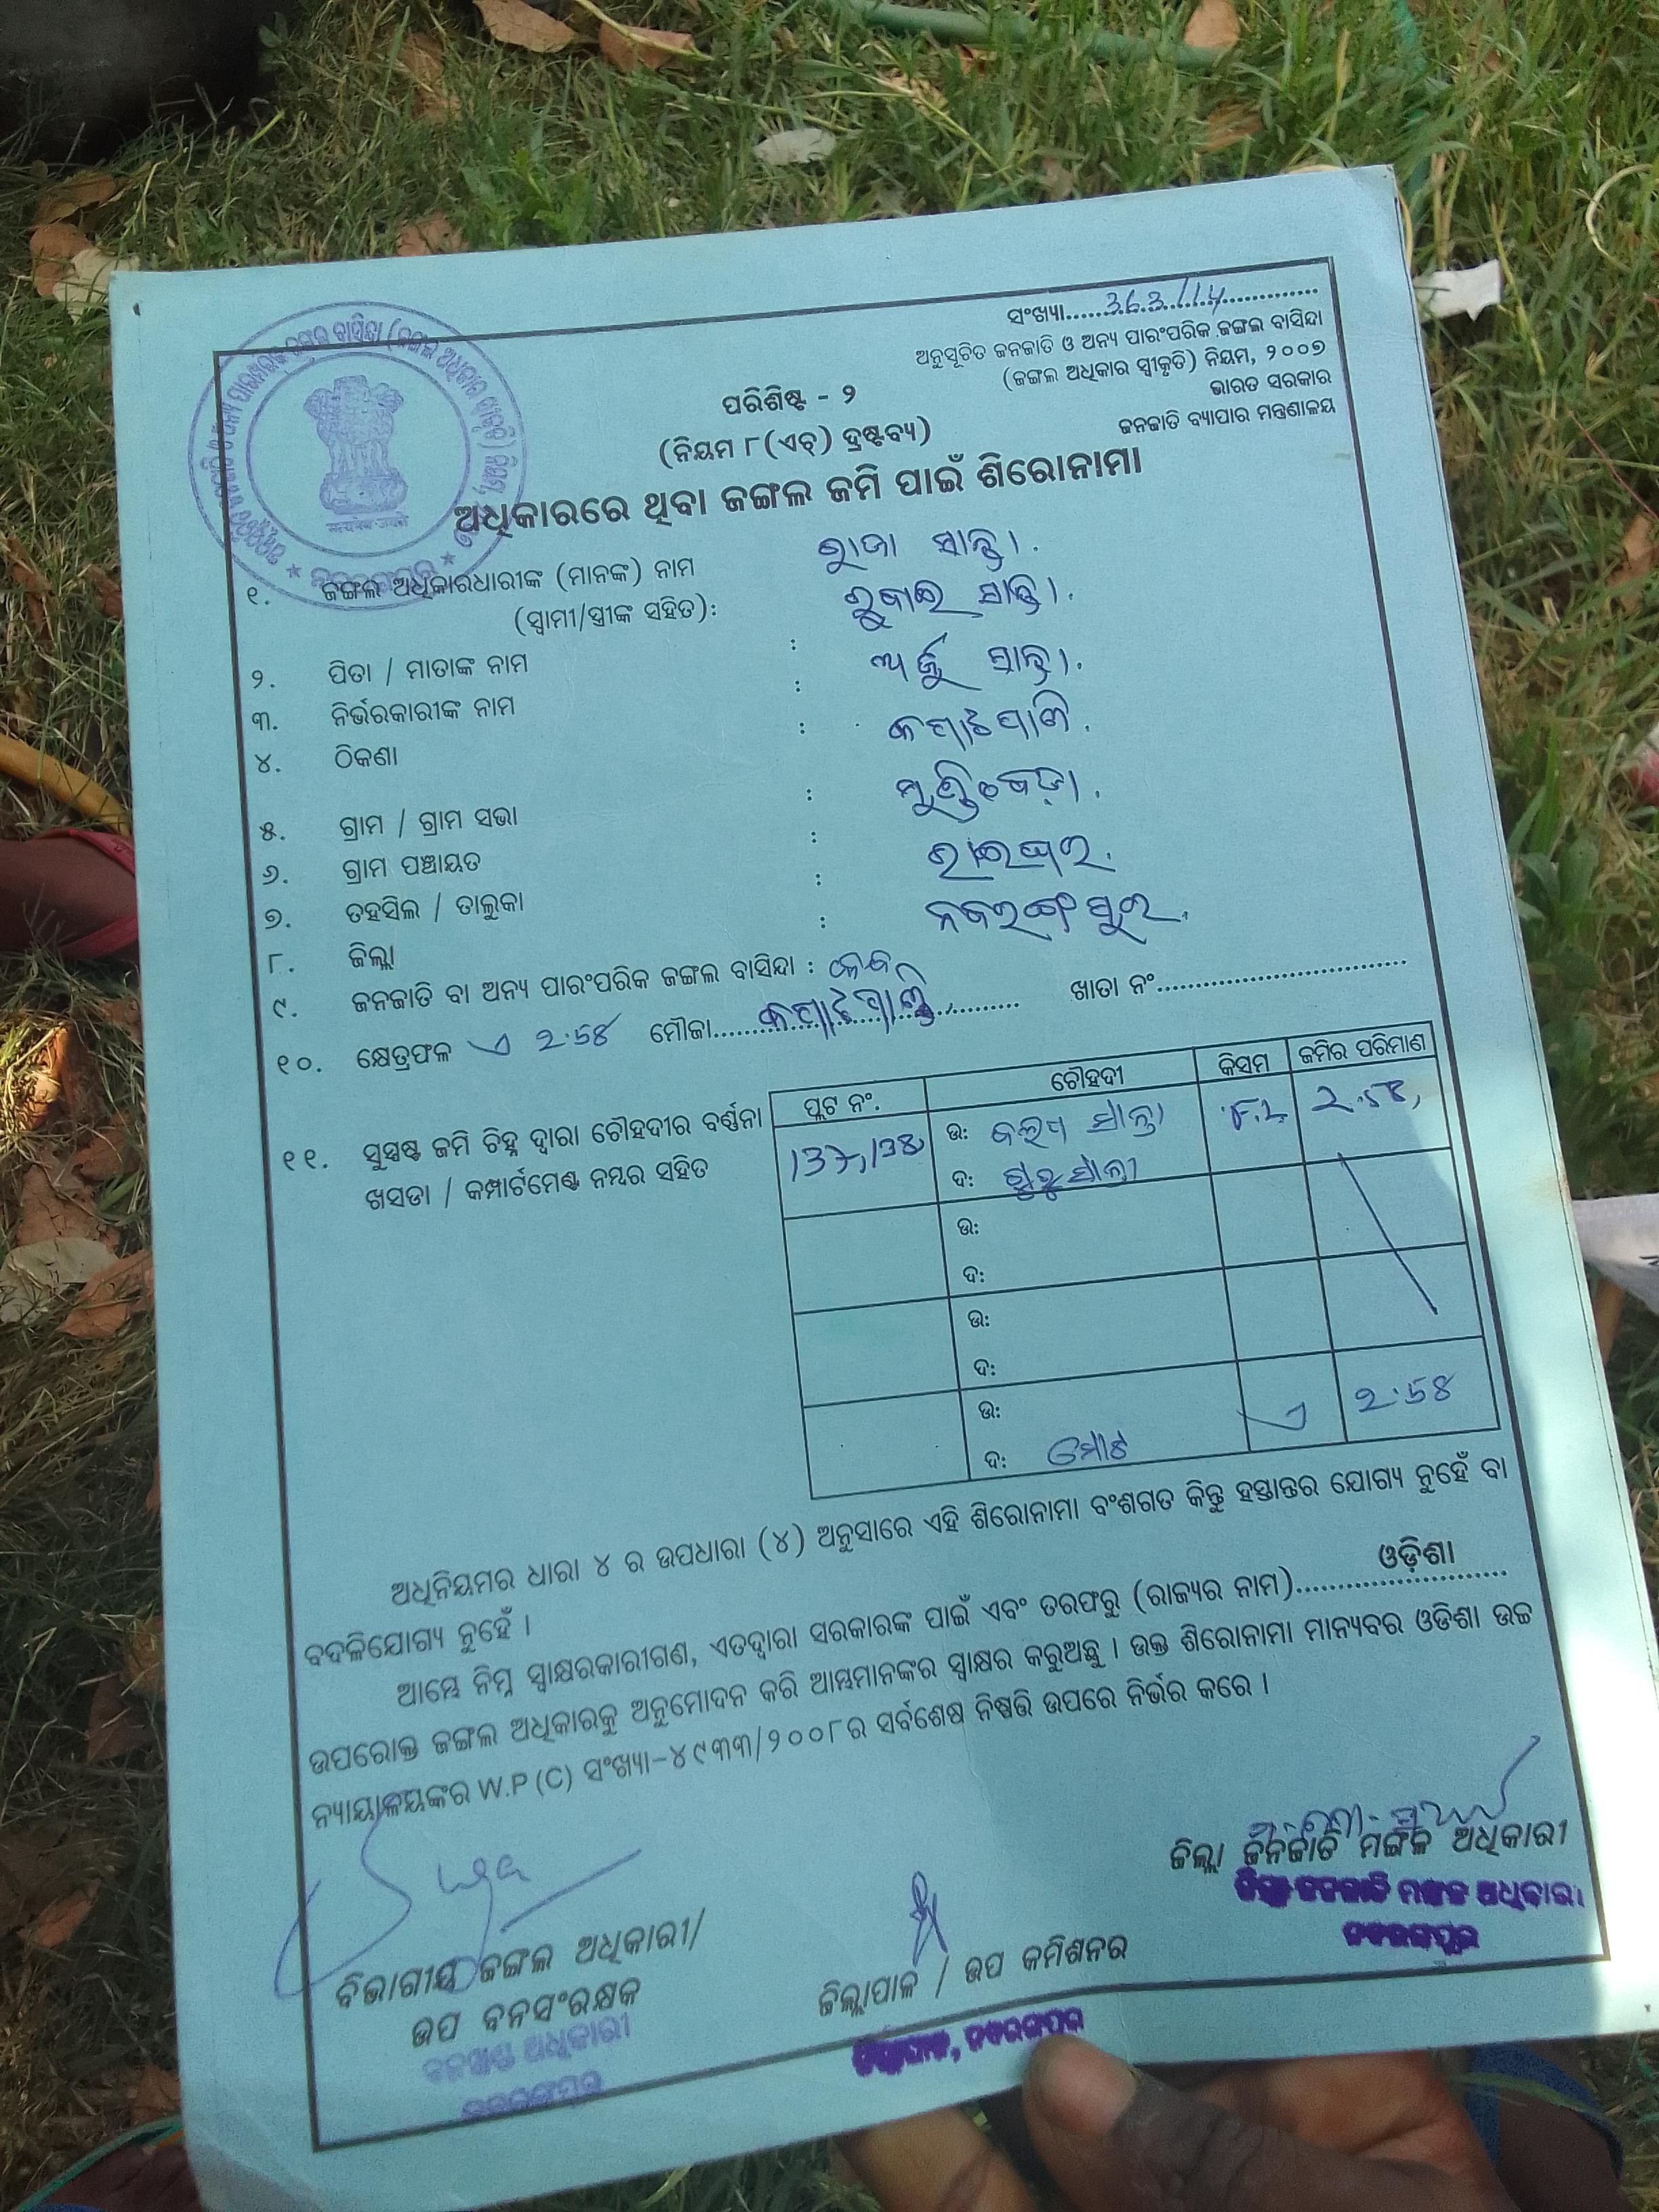 ସଂଖ୍ୟା..........363/14..........
ଅନୁସୂଚିତ ଜନଜାତି ଓ ଅନ୍ୟ ପାରଂପରିକ ଜଙ୍ଗଲ ବାସିନ୍ଦା
(ଜଙ୍ଗଲ ଅଧିକାର ସ୍ୱୀକୃତି) ନିୟମ, ୨୦୦୭
ଭାରତ ସରକାର
ଜନଜାତି ବ୍ୟାପାର ମନ୍ତ୍ରଣାଳୟ
ପରିଶିଷ୍ଟ - ୨
(ନିୟମ ୮(ଏଚ୍) ଦ୍ରଷ୍ଟବ୍ୟ)
ଅଧିକାରରେ ଥିବା ଜଙ୍ଗଲ ଜମି ପାଇଁ ଶିରୋନାମା
୧. ଜଙ୍ଗଲ ଅଧିକାରଧାରୀଙ୍କ (ମାନଙ୍କ) ନାମ
(ସ୍ୱାମୀ/ସ୍ତ୍ରୀଙ୍କ ସହିତ):
ସାନ୍ତା.
୨. ପିତା / ମାତାଙ୍କ ନାମ : ସାନ୍ତା.
୩. ନିର୍ଭରକାରୀଙ୍କ ନାମ : ସାନ୍ତା.
୪. ଠିକଣା :
୫. ଗ୍ରାମ / ଗ୍ରାମ ସଭା :
୬. ଗ୍ରାମ ପଞ୍ଚାୟତ :
୭. ତହସିଲ / ତାଲୁକା : ରାଇଘର.
୮. ଜିଲ୍ଲା : ନବରଙ୍ଗପୁର.
୯. ଜନଜାତି ବା ଅନ୍ୟ ପାରଂପରିକ ଜଙ୍ଗଲ ବାସିନ୍ଦା :
୧୦. କ୍ଷେତ୍ରଫଳ ଏ 2.58 ମୌଜା.................... ଖାତା ନଂ..............................
୧୧. ସୁସ୍ପଷ୍ଟ ଜମି ଚିହ୍ନ ଦ୍ୱାରା ଚୌହଦୀର ବର୍ଣ୍ଣନା
ଖସଡା / କମ୍ପାର୍ଟମେଣ୍ଟ ନମ୍ବର ସହିତ
ପ୍ଲଟ ନଂ. ଚୌହଦୀ କିସମ ଜମିର ପରିମାଣ
137,138 ଉ: ସାନ୍ତା F.L 2.58,
ଦ:
ଉ:
ଦ:
ଉ:
ଦ:
ଉ:
ଦ: ମୋଟ ଏ 2.58
ଅଧିନିୟମର ଧାରା ୪ ର ଉପଧାରା (୪) ଅନୁସାରେ ଏହି ଶିରୋନାମା ବଂଶଗତ କିନ୍ତୁ ହସ୍ତାନ୍ତର ଯୋଗ୍ୟ ନୁହେଁ ବା
ବଦଳିଯୋଗ୍ୟ ନୁହେଁ ।
ଆମ୍ଭେ ନିମ୍ନ ସ୍ୱାକ୍ଷରକାରୀଗଣ, ଏତଦ୍ୱାରା ସରକାରଙ୍କ ପାଇଁ ଏବଂ ତରଫରୁ (ରାଜ୍ୟର ନାମ)..........ଓଡ଼ିଶା..........
ଉପରୋକ୍ତ ଜଙ୍ଗଲ ଅଧିକାରକୁ ଅନୁମୋଦନ କରି ଆମ୍ଭମାନଙ୍କର ସ୍ୱାକ୍ଷର କରୁଅଛୁ । ଉକ୍ତ ଶିରୋନାମା ମାନ୍ୟବର ଓଡିଶା ଉଚ୍ଚ
ନ୍ୟାୟାଳୟଙ୍କର W.P (C) ସଂଖ୍ୟା-୪୯୩୩/୨୦୦୮ର ସର୍ବଶେଷ ନିଷ୍ପତ୍ତି ଉପରେ ନିର୍ଭର କରେ ।
ଜିଲ୍ଲା ଜନଜାତି ମଙ୍ଗଳ ଅଧିକାରୀ
ଜିଲ୍ଲା ଜନଜାତି ମଙ୍ଗଳ ଅଧିକାରୀ
ନବରଙ୍ଗପୁର
ବିଭାଗୀୟ ଜଙ୍ଗଲ ଅଧିକାରୀ/
ଉପ ବନସଂରକ୍ଷକ
ବନଖଣ୍ଡ ଅଧିକାରୀ
ନବରଙ୍ଗପୁର
ଜିଲ୍ଲାପାଳ / ଉପ କମିଶନର
ଜିଲ୍ଲାପାଳ, ନବରଙ୍ଗପୁର